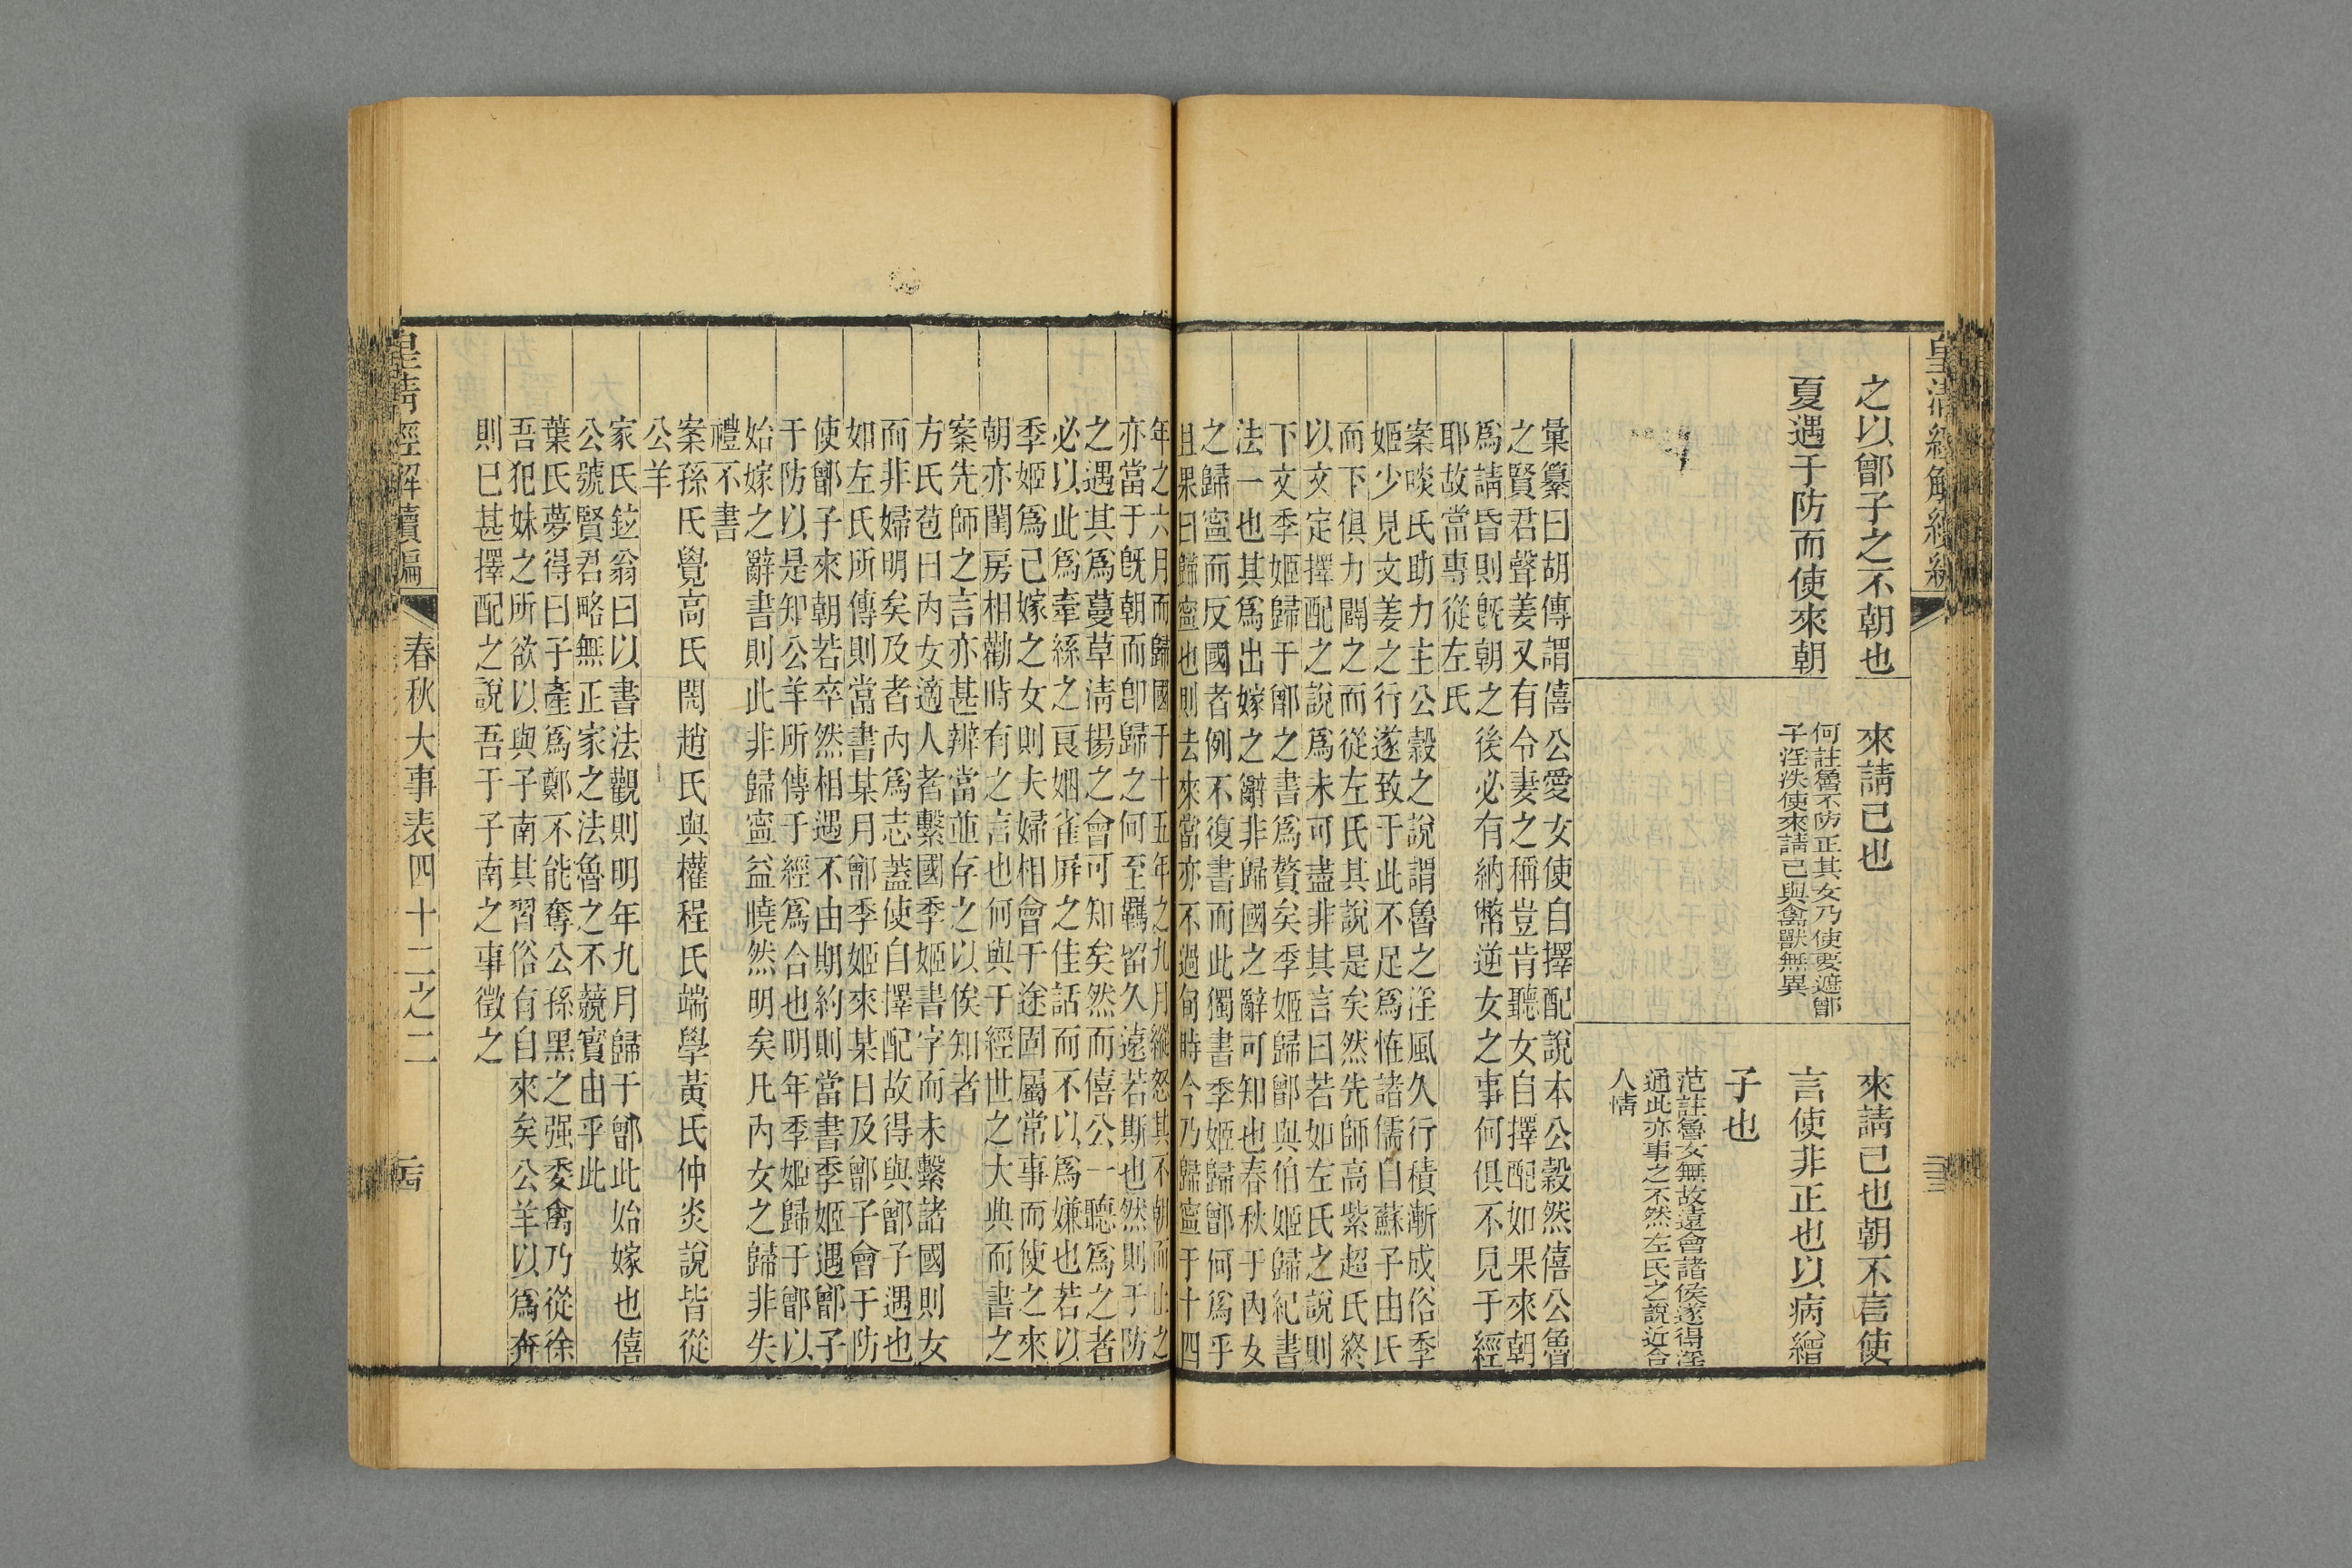 皇清經解續編
之以鄫子之不朝也
夏遇于防而使來朝
來請己也
何註魯不防正其女乃使要遮鄫
子淫泆使來請己與禽獸無異
來請己也朝不言使
言使非正也以病繒
子也
范註魯女無故遠會諸侯遂得淫
通此亦事之不然左氏之說近合
人情
彙纂曰胡傳謂僖公愛女使自擇配說本公穀然僖公魯
之賢君聲姜又有令妻之稱豈肯聽女自擇配如果來朝
爲請昏則旣朝之後必有納幣逆女之事何俱不見于經
耶故當專從左氏
案啖氏助力主公穀之說謂魯之淫風久行積漸成俗季
姬少見文姜之行遂致于此不足爲怪諸儒自蘇子由氏
而下俱力闢之而從左氏其說是矣然先師高紫超氏終
以文定擇配之說爲未可盡非其言曰若如左氏之說則
下文季姬歸于鄫之書爲贅矣季姬歸鄫與伯姬歸紀書
法一也其爲出嫁之辭非歸國之辭可知也春秋于內女
之歸寧而反國者例不復書而此獨書季姬歸鄫何爲乎
且果曰歸寧也則去來當亦不過旬時今乃歸寧于十四
年之六月而歸國于十五年之九月縱怒其不朝而止之
亦當于旣朝而卽歸之何至羈留久遠若斯也然則于防
之遇其爲蔓草淸揚之會可知矣然而僖公一聽爲之者
必以此爲牽絲之良姻雀屏之佳話而不以爲嫌也若以
季姬爲己嫁之女則夫婦相會于途固屬常事而使之來
朝亦閨房相勸時有之言也何與于經世之大典而書之
案先師之言亦甚辨當並存之以俟知者
方氏苞曰內女適人者繫國季姬書字而未繫諸國則女
而非婦明矣及者內爲志蓋使自擇配故得與鄫子遇也
如左氏所傳則當書某月鄫季姬來某日及鄫子會于防
使鄫子來朝若卒然相遇不由期約則當書季姬遇鄫子
于防以是知公羊所傳于經爲合也明年季姬歸于鄫以
始嫁之辭書則此非歸寧益曉然明矣凡內女之歸非失
禮不書
案孫氏覺高氏閌趙氏與權程氏端學黃氏仲炎說皆從
公羊
家氏鉉翁曰以書法觀則明年九月歸于鄫此始嫁也僖
公號賢君略無正家之法魯之不競實由乎此
葉氏夢得曰子產爲鄭不能奪公孫黑之强委禽乃從徐
吾犯妹之所欲以與子南其習俗有自來矣公羊以爲奔
則已甚擇配之說吾于子南之事徵之
皇淸經解續編
春秋大事表四十二之二